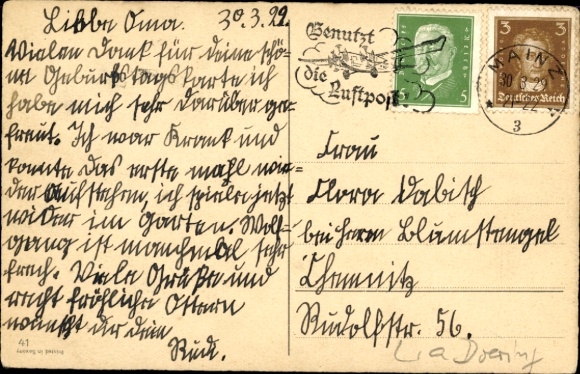 Liebe Oma. 30.3.29
Vielen Dank für deine schö-
ne Geburtstagskarte ich
habe mich sehr darüber ge-
freut. Ich war Krank und
konnte das erste mahl wie-
der Aufstehen, ich spiele jetzt
wider im Garten. Wolf-
gang ist manchmal sehr
frech. Viele Grüße und
recht fröhliche Ostern
wünscht dir dein
Rudi.
41
Printed in Saxony
Benutzt
die Luftpost
5 5
3 3
Deutsches Reich
MAINZ
30.3.29
3
Frau
Clara Dabisch
bei Herrn Blumstengel
Chemnitz
Rudolfstr. 56.
Doering